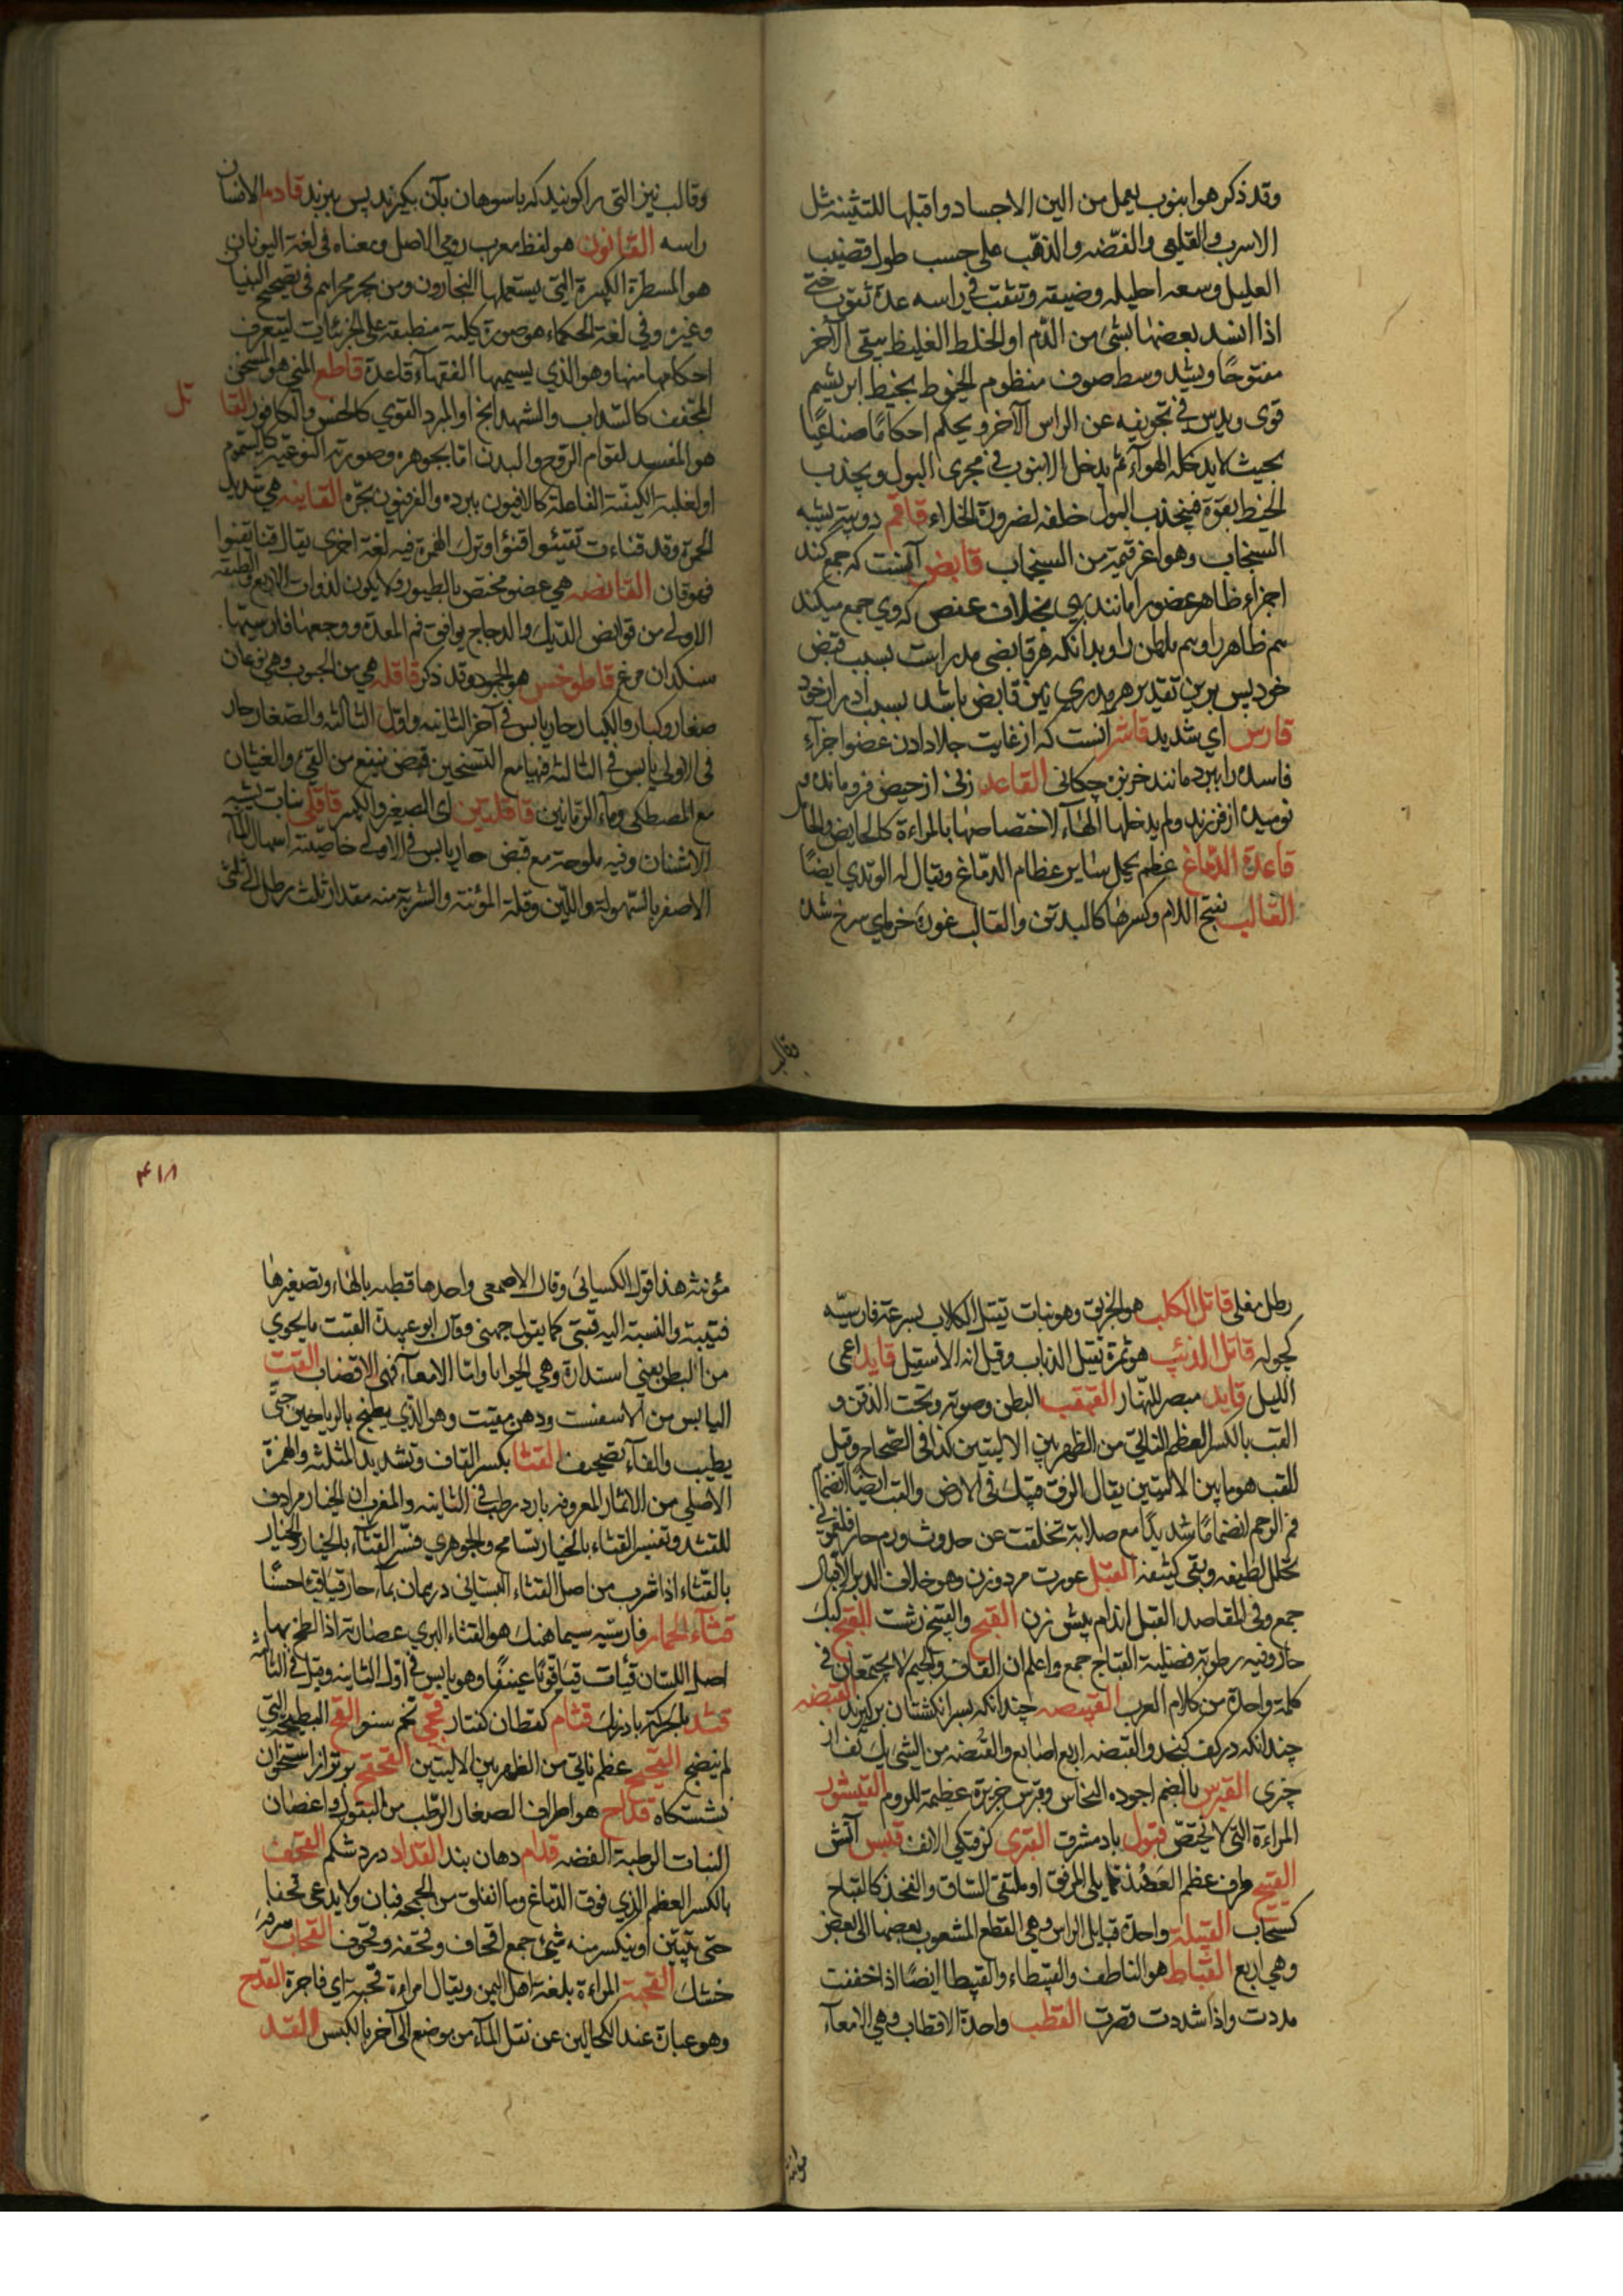 وقد ذكر هو انبوب يعمل من الين الاجساد واقبلها للتثينه مثل
الاسرب والقلعى والفضّه والذهب على حسب طول قضيب
العليل وسعه احليله وضيقه وتثقب فى راسه عدة ثقوب حتى
اذا انسد بعضها بشئ من الدم او الخلط الغليظ يبقى الآخر
مفتوحًا ويشد وسط صوف منظوم الخيوط بخيط ابريشم
قوى ويدس فى تجويفه عن الراس الآخر ويحكم احكامًا صناعيًا
بحيث لا يدخله الهواء ثم يدخل الانبوب فى مجرى البول ويجذب
الخيط بقوة فينجذب البول خلفه لضرورة الخلاء قاقم دويبة يشبه
السنجاب وهو اعز قيمة من السنجاب قابض آنست كه جمع كند
اجزاء ظاهر عضو را مانند بهى بخلاف عفص كه وى جمع ميكند
هم ظاهر را وهم باطن را وبدانكه هر قابضى مدر است بسبب قبض
خود پس برين تقدير هر مدرى نيز قابض باشد بسبب ادرار خود
قارس اى شديد قاشر آنست كه از غايت جلا دادن عضو اجزاء
فاسده را ببرد مانند خربزه چكانى القاعد زنى از حيض فرو مانده و
نوميده از فرزند ولم يدخلها الهاء لاختصاصها بالمراءة كالحايض والحامل
قاعدة الدماغ عظم يحمل ساير عظام الدماغ ويقال له الوتدي ايضًا
القالب بفتح اللام وكسرها كالبدن والقالب غوره خرماى سرخ شده
وقالب
وقالب نيز التى را كويند كه باسوهان بآن بكيرند پس ببرند قادمة الانسان
راسه القانون هو لفظ معرب رومى الاصل ومعناه فى لغة اليونان
هو المسطرة الكبيرة التى يستعملها النجارون ومن يجر مجراهم فى تصحيح البنيا
وغيره وفى لغة الحكماء هو صورة كلية منطبقة على الجزئيات ليتعرف
احكامها منها وهو الذي يسميها الفقهاء قاعدة قاطع المنى هو المسخن
المجفف كالسداب والشهدانج او المبرد القوي كالخس والكافور القا
تل
هو المفسد لقوام الروح والبدن اما بجوهره وصورته النوعية كالسموم
او لغلبة الكيفية الفاعلة كالافيون ببرده والفرفيون بحره القانيه هى شديد
الحمرة وقد قناءت تقنئو اقنؤا وترك الهمزة فيه لغة اخرى يقال قنا يقنوا
فهو قان القانصه هى عضو مختص بالطيور ولا يكون لذوات الاربع والطبقه
الاولى من قوانص الديك والدجاج يوافق فم المعدة ووجعها فارسيتها
سنكدان مرغ قاطوخس هو الجمود وقد ذكر قاقله هى من الحبوب وهى نوعان
صغار وكبار والكبار حار يابس فى آخر الثانيه واول الثالثه والصغار حار
فى الاولى يابس فى الثالثه فيها مع التسخين قبض ينفع من القئ والغثيان
مع المصطكى وماء الرمانين قاقلتين اى الصغير والكبير قاقلى نبات يشبه
الاشنان وفيه ملوحة مع قبض حار يابس فى الاولى خاصيته اسهال الماء
الاصفر بالسهولة واللين وقلة المؤنة والشربة منه مقدار ثلث رطل الى ثلثى
رطل مغلى قاتل الكلب هو الخربق وهو نبات يقتل الكلاب بسرعة فارسيه
كچوله قاتل الذئب هو ثمرة يقتل الذياب وقيل انه الاسقيل قايد اعمى
الليل قايد مبصر للنهار القبقب البطن وصوته وتحت الذقن و
القب بالكسر العظم الناتى من الظهر بين الاليتين كذا فى الصحاح وقيل
القب هو ما بين الاليتين يقال الزق قبك فى الارض والقب ايضًا انضمام
فم الرحم انضمامًا شديدًا مع صلابة تخلقت عن حدوث ورم حار فلغمونى
تحلل لطيفه وبقى كثيفه القبل عورت مرد وزن وهو خلاف الدبر الاقبال
جمع وفى المقاصد القبل اندام پيش زن القبح والقبيح زشت القبج كبك
حار وفيه رطوبة فضلية القباج جمع واعلم ان القاف والجيم لا يجتمعان فى
كلمة واحدة من كلام العرب القبيصه چندانكه بسر انكشتان بركيرند القبضه
چندانكه در كف كنجد والقبضه اربع اصابع والقبضه من الشئ يك كف از
چيزى القبرس بالضم اجوده النحاس وقبرس جزيرة عظيمة للروم القبشور
المراءة التى لا تحيض قبول باد مشرق القبرى بزركى الانف قبس آتش
القبيح طرف عظم العضد مما يلى المرفق او ملتقى الساق والفخذ كالقباح
كسحاب القبيلة واحدة قبايل الراس وهى القطع المشعوب بعضها الى بعض
وهى اربع القباط هو الناطف والقبيطاء والقبيطا ايضًا اذا خففت
مددت واذا شددت قصرت القطب واحدة الاقطاب وهى الامعآء
مؤنثه
٤١٨
مؤنثه هذا قول الكسيائى وقال الاصمعى واحدها قطبه بالهاء وتصغيرها
قتيبة والنسبة اليه قتبى كما يقول جهنى وقال ابو عبيدة القتب ما يحوي
من البطن يعنى استدارة وهى الحوايا واما الامعاء فهى الاقصاب القت
اليابس من الاسفست ودهن مقتت وهو الذي يطبخ بالرياحين حتى
يطيب والفاء تصحيف القثا بكسر القاف وتشديد المثلثه والهمزة
الاصلى من الاثمار المعروفه بارد رطب فى الثانيه والمغرب ان الخيار مرادف
للقثد وتفسير القثاء بالخيار تسامح والجوهري فسر القثاء بالخيار والخيار
بالقثاء اذا شرب من اصل القثاء البستانى درهمان بماء حار قيأ قيئا حسنًا
قثاء الحمار فارسيه سيماهنك هو القثاء البري عصارته اذا لطخ بها
اصل اللسان قيأت قيأ قويًا عنيفًا وهو يابس فى اول الثانيه وقيل فى الثالثه
قثد بالحركة بادرنك قثام كقطان كفتار قحى تخم سنو القح البطيخة التى
لم ينضج القحيح عظم ناتى من الظهر بين الاليتين القحقح برتو از استخوان
نشستكاه قداح هو اطراف الصغار الرطب من البقول واغصان
النبات الرطبة الغضه قدام دهان بند القداد درد شكم القحف
بالكسر العظم الذي فوق الدماغ وما انفلق من الجمجمه فبان ولا يدعى قحفا
حتى يبين او ينكسر منه شئ جمع اقحاف وقحفه وقحوف القحاب سرفه
خشك القحبة المراءة بلغة اهل اليمن ويقال امراءة قحبة اى فاجرة القدح
وهو عبارة عند الكحالين عن نقل الماء من موضع الى آخر بالكبس القد